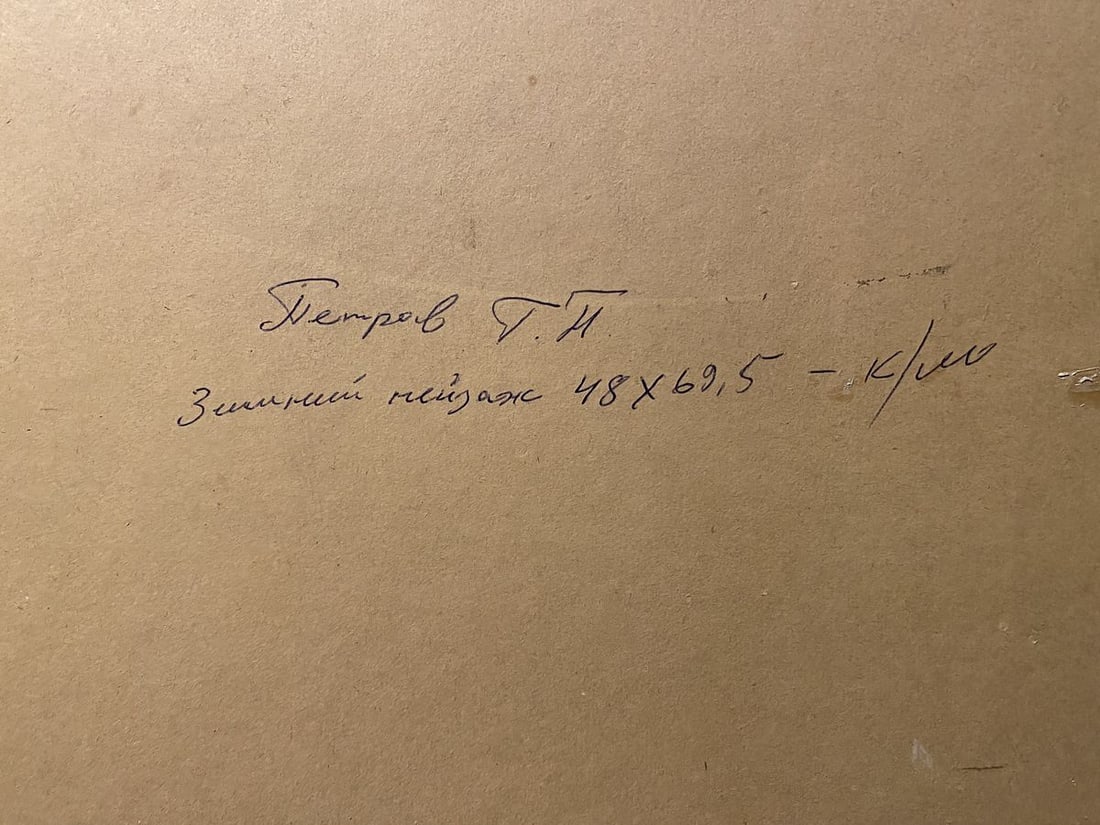 Петров Г. П.
Зимний пейзаж 48х69,5 - к/м